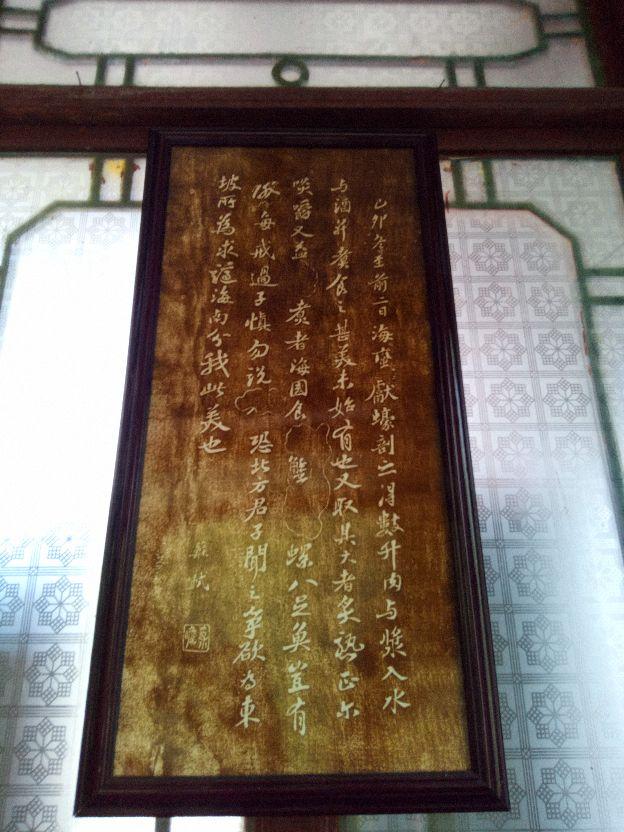 己卯冬至前二日海蠻獻蠔剖之得數升肉与漿入水
与酒并煮食之甚美未始有也又取其大者炙熟正尔
啖嚼又益 煮者海国食 螺八足魚豈有
每戒過子慎勿說 恐北方君子聞之爭欲为東
坡所為求謫海南分我此美也
蘇軾